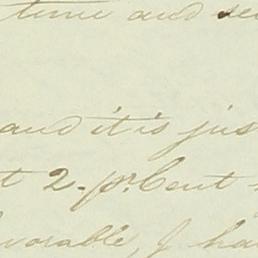 time and se
and it is jus
t 2-pr. Cent
vorable, I ha